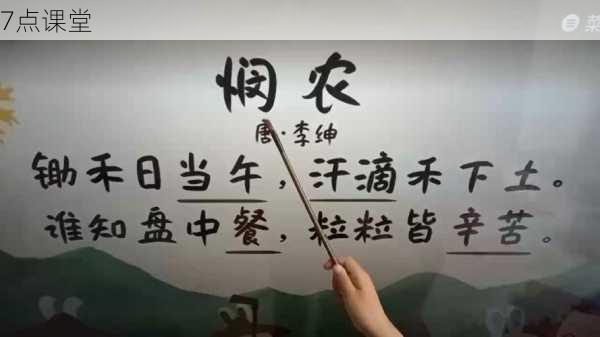 7点课堂
菜
悯农
唐·李绅
锄禾日当午，汗滴禾下土。
谁知盘中餐，粒粒皆辛苦。